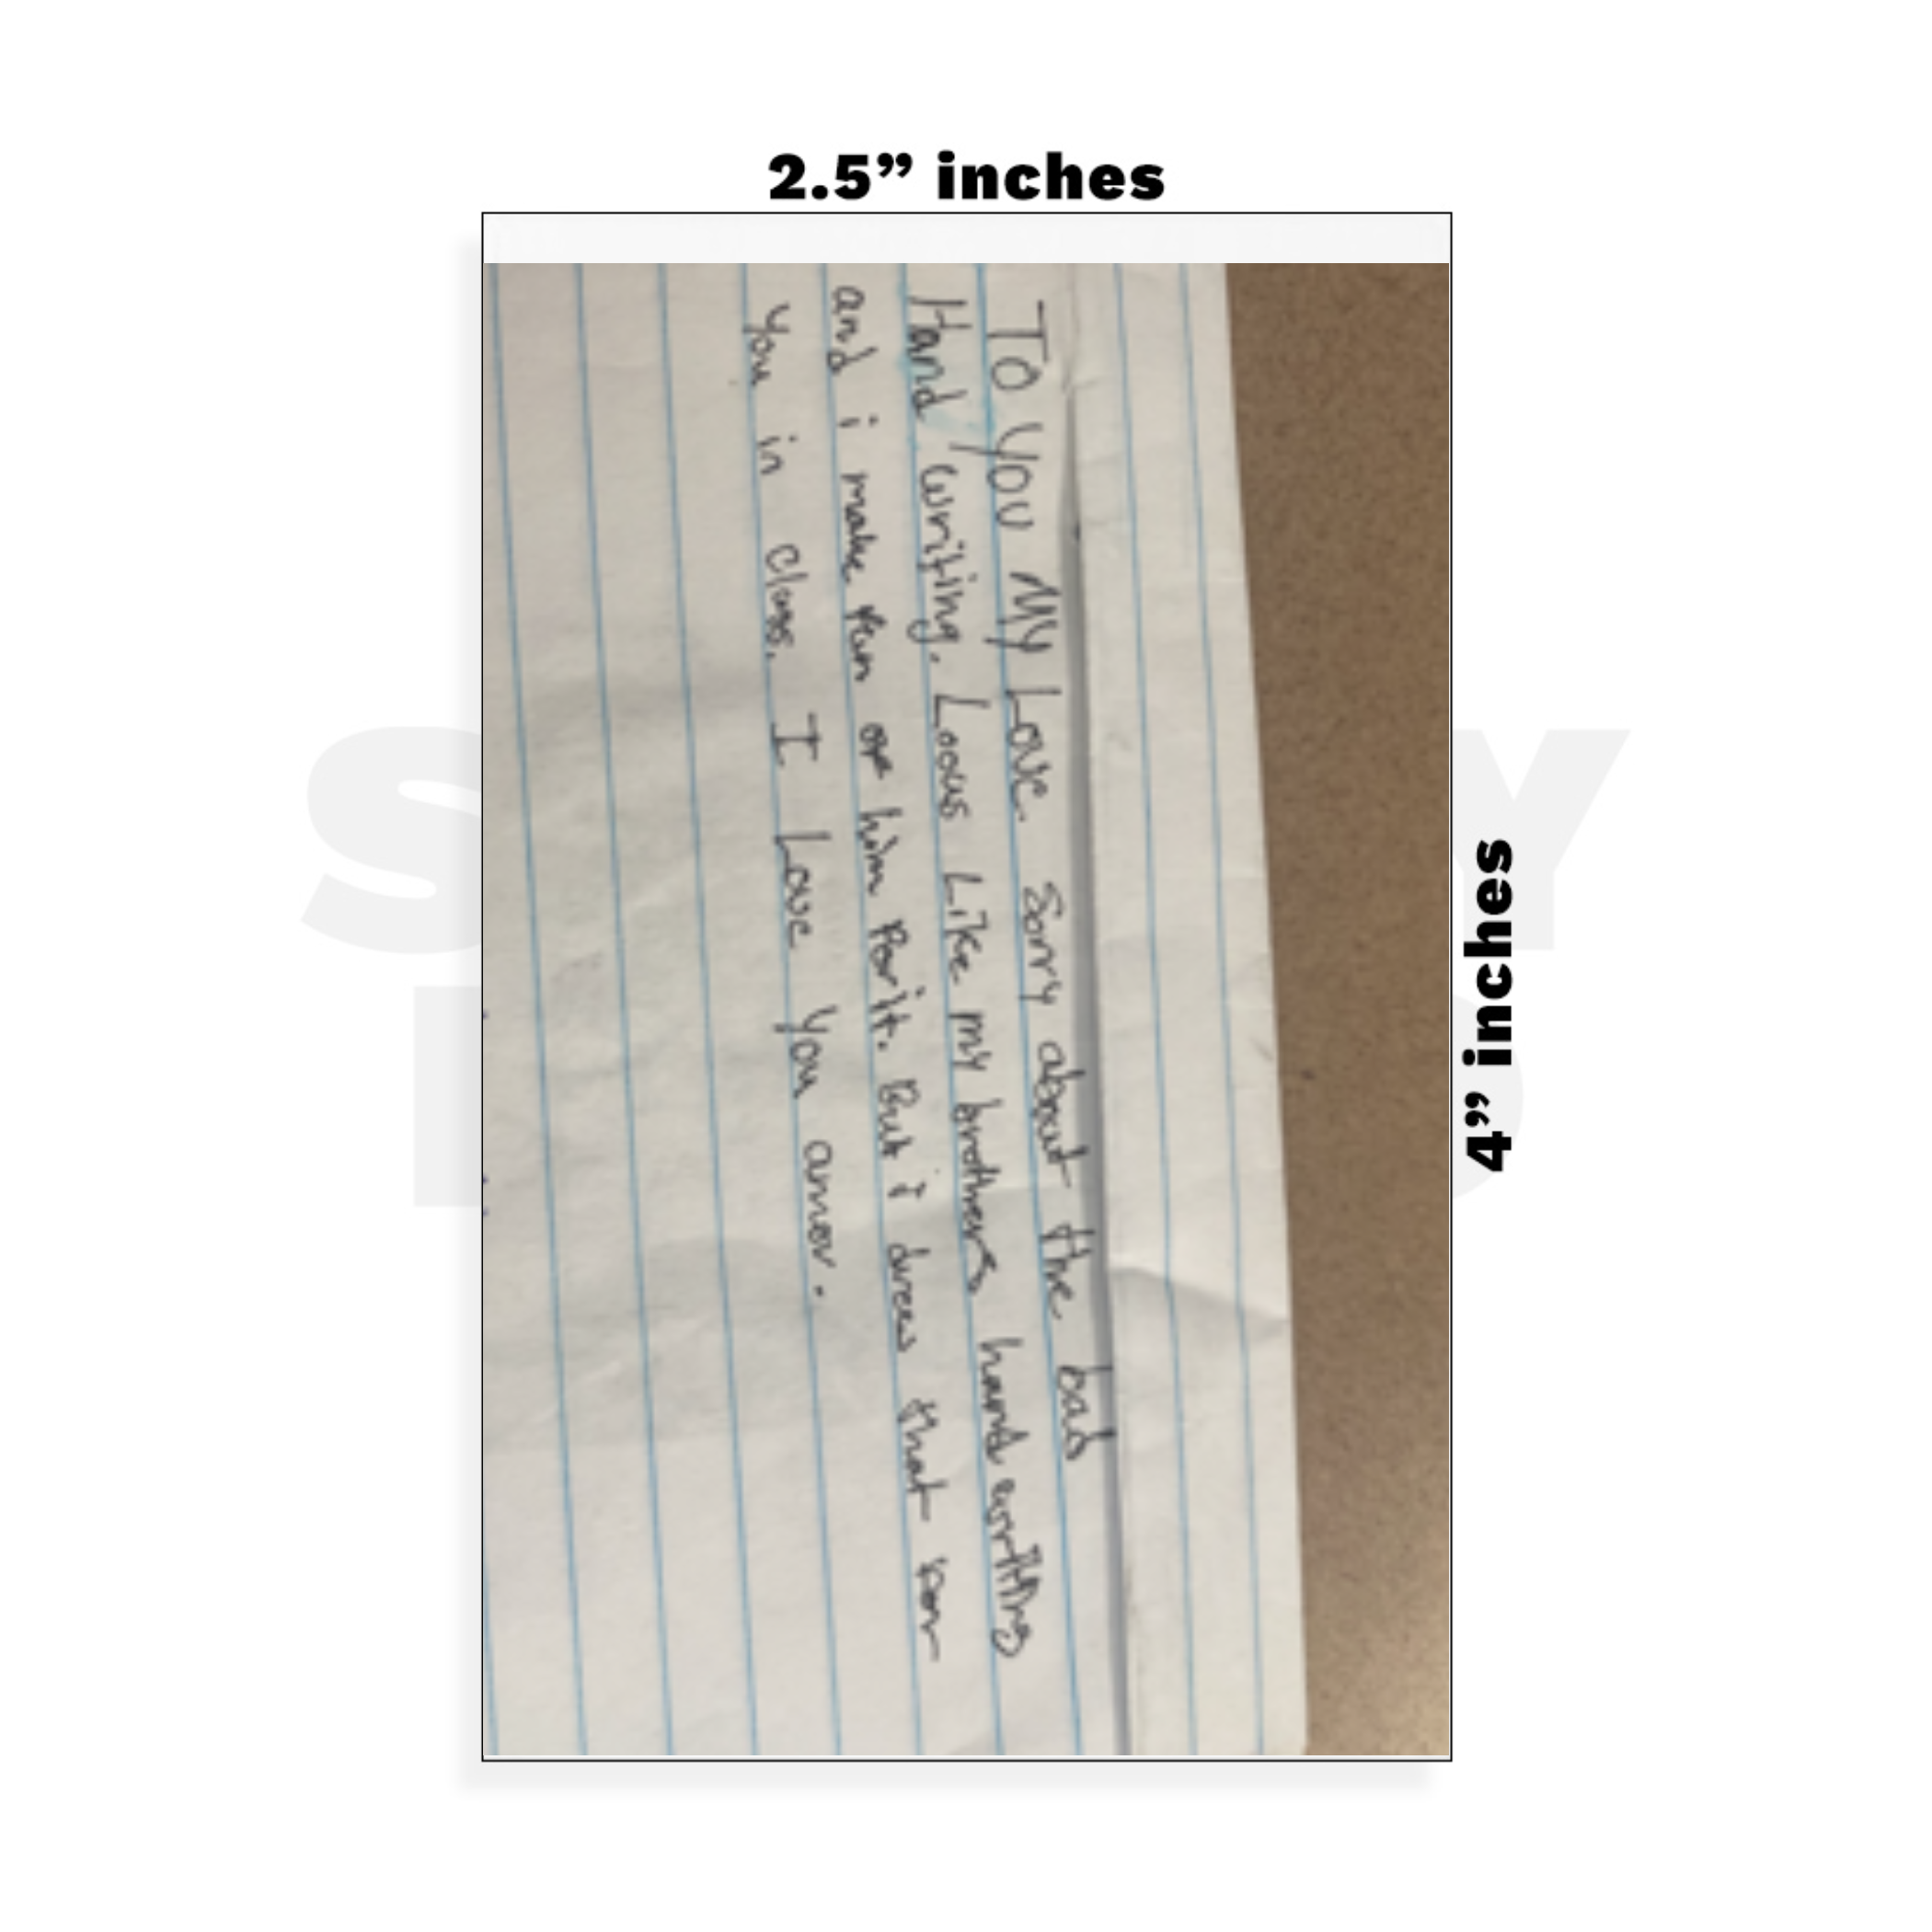 2.5” inches
To You My Love Sorry about the bad
Hand writing. Looks Like my brothers hand writting
and i make fun of him for it. But i drew that for
You in class. I Love You amor.
4” inches